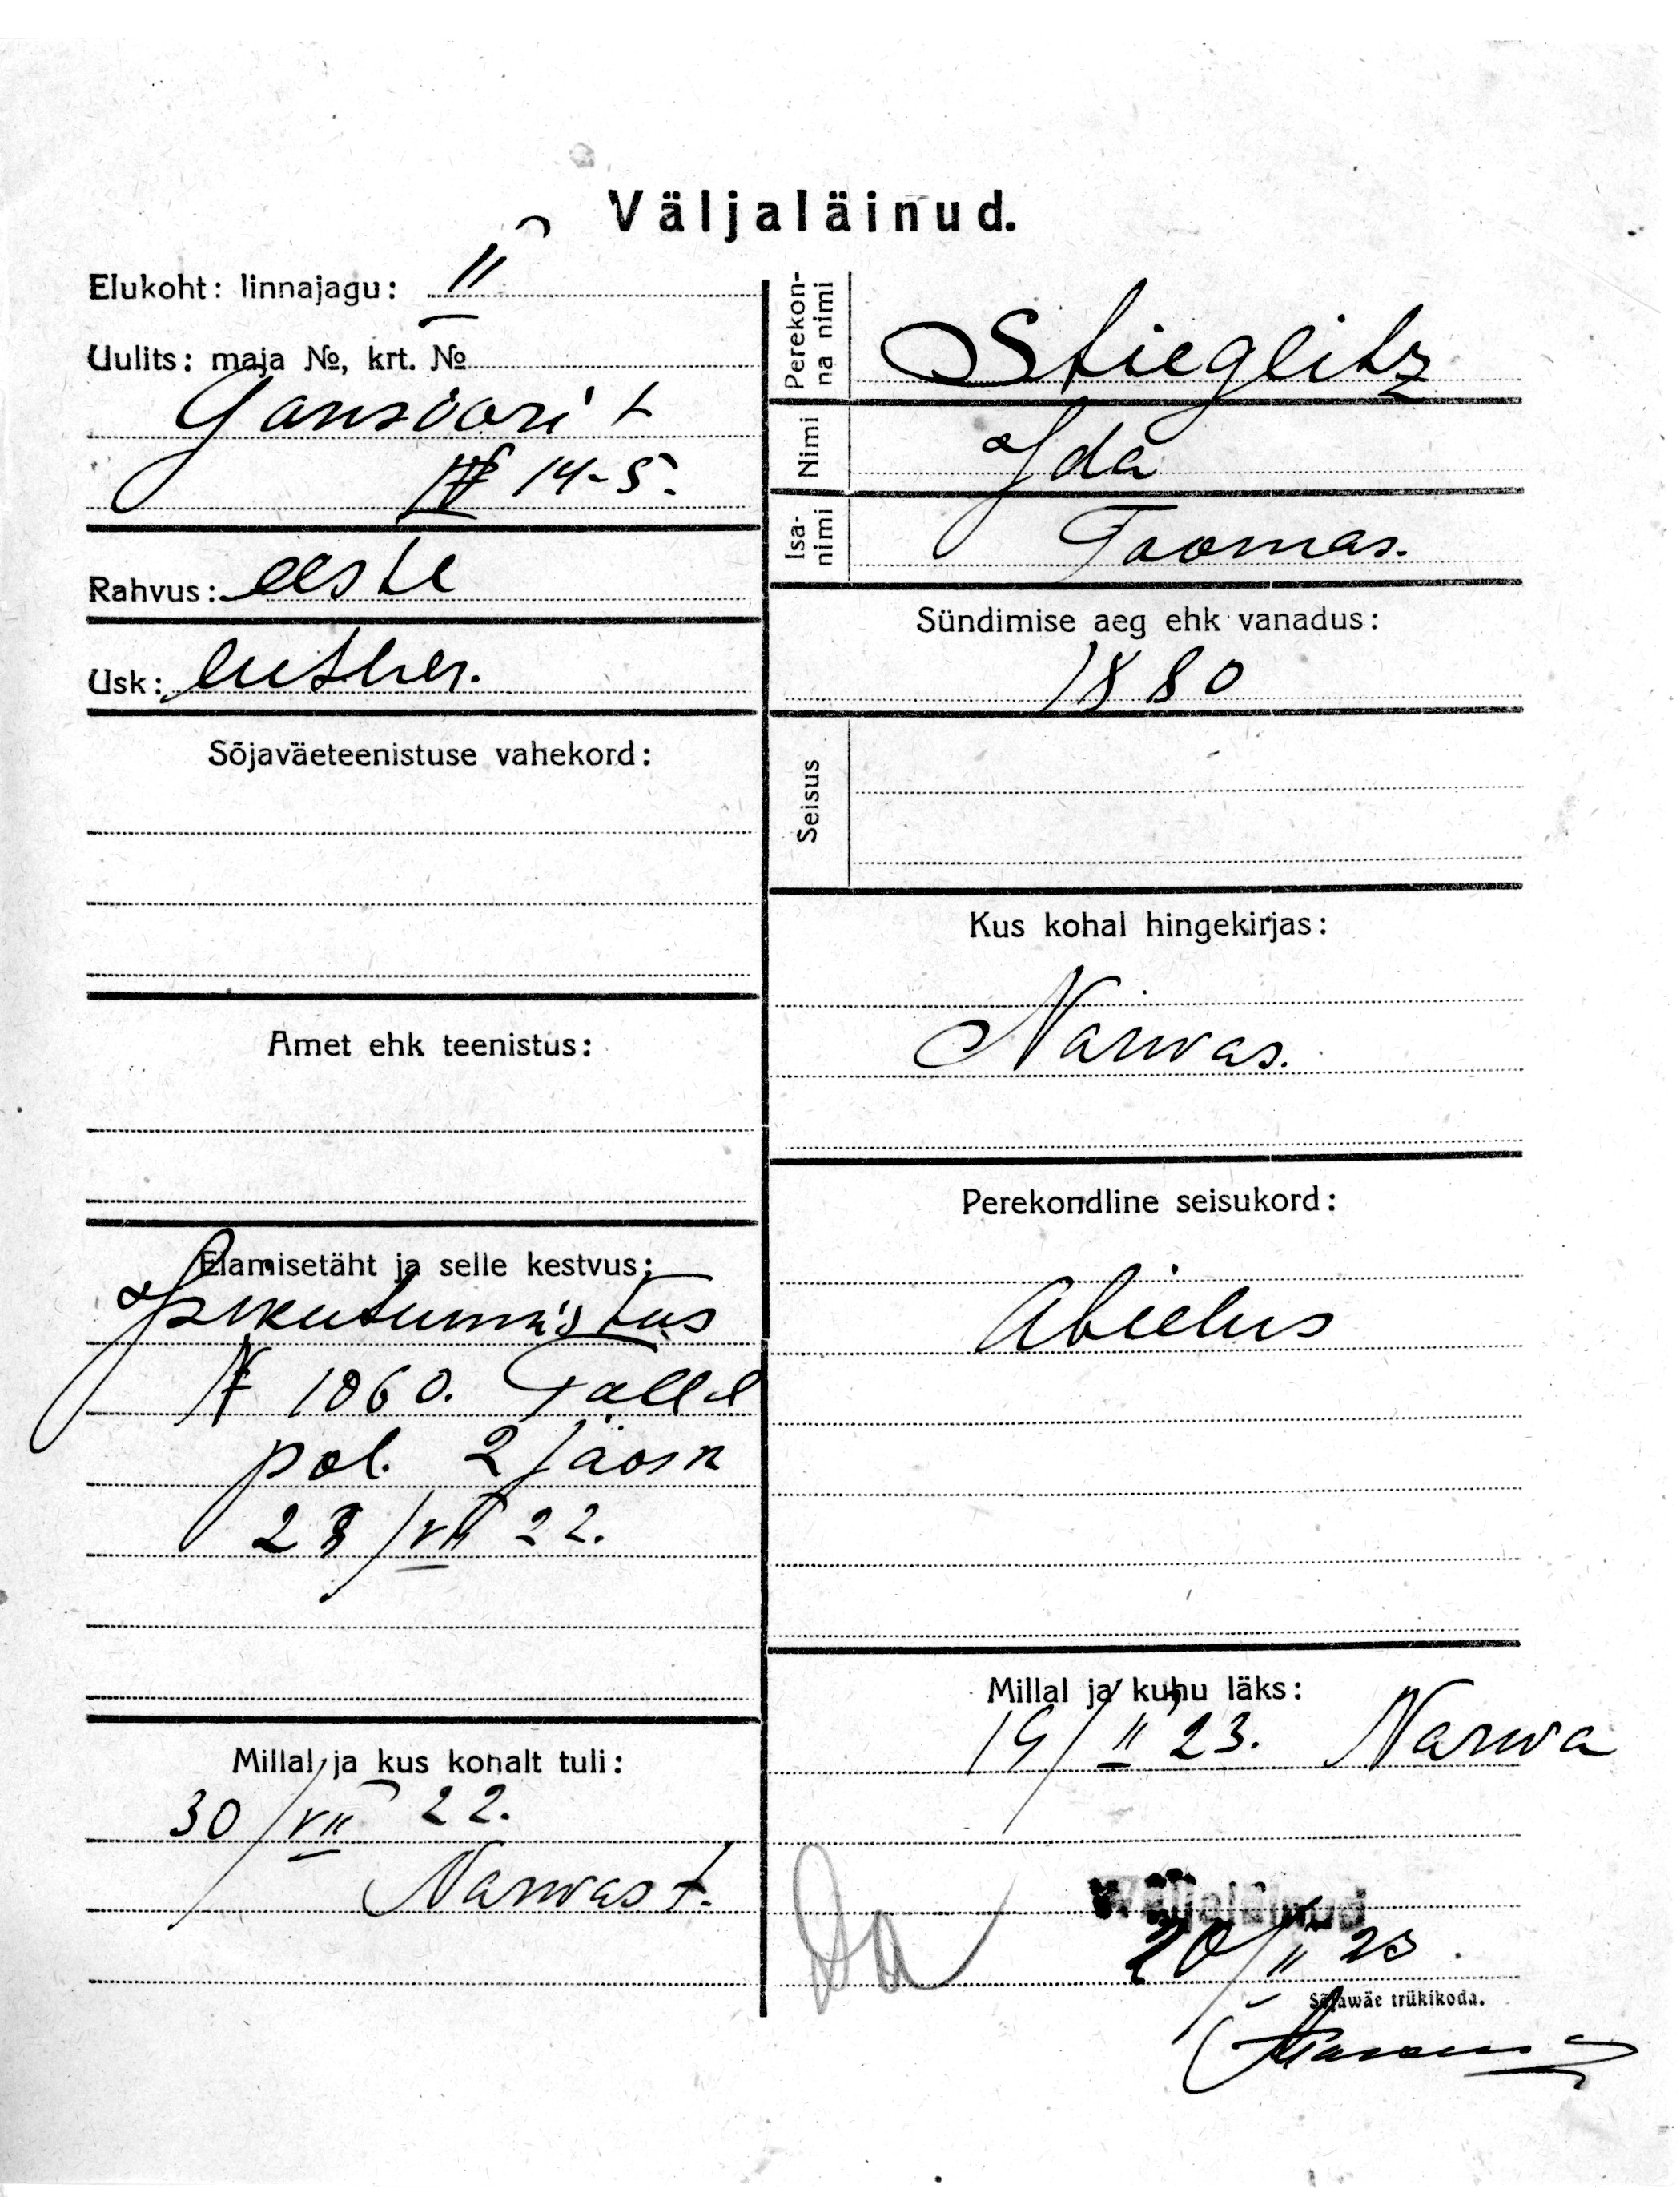 Väljaläinud.
Elukoht: linnajagu: II
Uulits: maja №, krt. №
Gonsiori t
№ 14-5.
Rahvus: eesti
Usk: luther.
Sõjaväeteenistuse vahekord:
Amet ehk teenistus:
Elamisetäht ja selle kestvus:
Isikutunnistus
№ 1060. Talla
pol. 2 jaosk
28/VII 22.
Millal ja kus kohalt tuli:
30/VII 22.
Narvast.
Perekonna nimi
Stieglitz
Nimi
Ida
Isanimi
Toomas.
Sündimise aeg ehk vanadus:
1880
Seisus
Kus kohal hingekirjas:
Narvas.
Perekondline seisukord:
Abielus
Millal ja kuhu läks:
19/II 23. Narva
Väljaläinud
20/II 23.
Sõjawäe trükikoda.